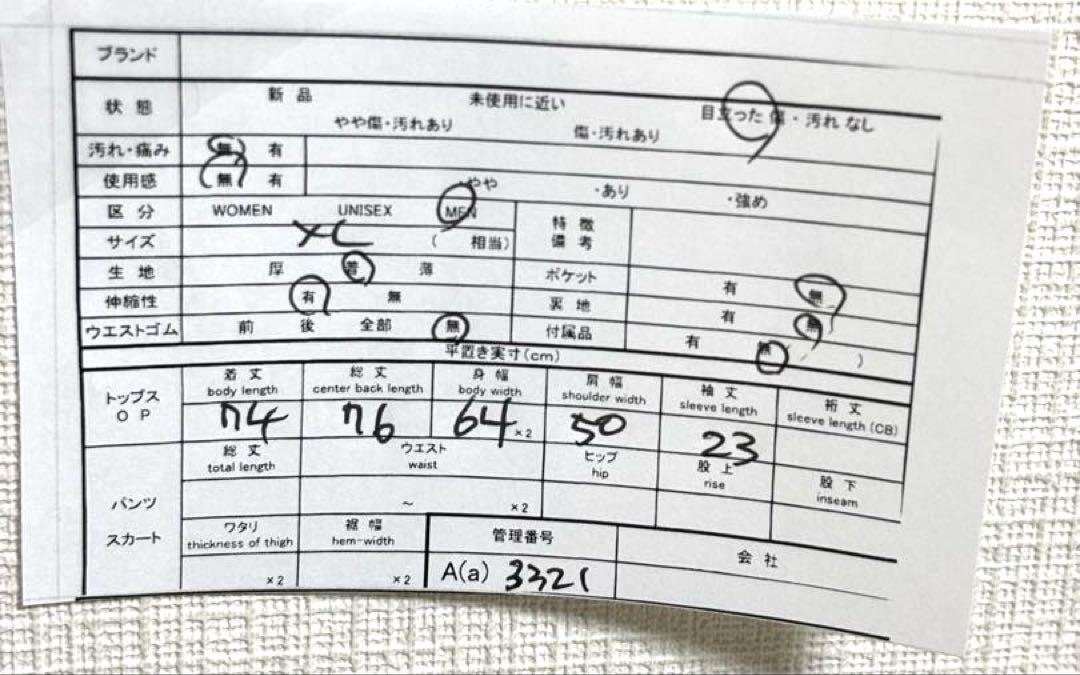 ブランド
状態 新品 未使用に近い 目立った傷・汚れなし
やや傷・汚れあり 傷・汚れあり
汚れ・痛み 無 有
使用感 無 有 ・やや ・あり ・強め
区分 WOMEN UNISEX MEN 特徴
サイズ XL ( 相当) 備考
生地 厚 普 薄 ポケット 有 無
伸縮性 有 無 裏地 有 無
ウエストゴム 前 後 全部 無 付属品 有 無 ( )
平置き実寸(cm)
トップス 着丈 総丈 身幅 肩幅 袖丈 裄丈
OP body length center back length body width shoulder width sleeve length sleeve length (CB)
74 76 64 ×2 50 23
総丈 ウエスト ヒップ 股上 股下
total length waist hip rise inseam
パンツ ～ ×2
スカート ワタリ 裾幅 管理番号 会社
thickness of thigh hem-width
×2 ×2 A(a) 3321